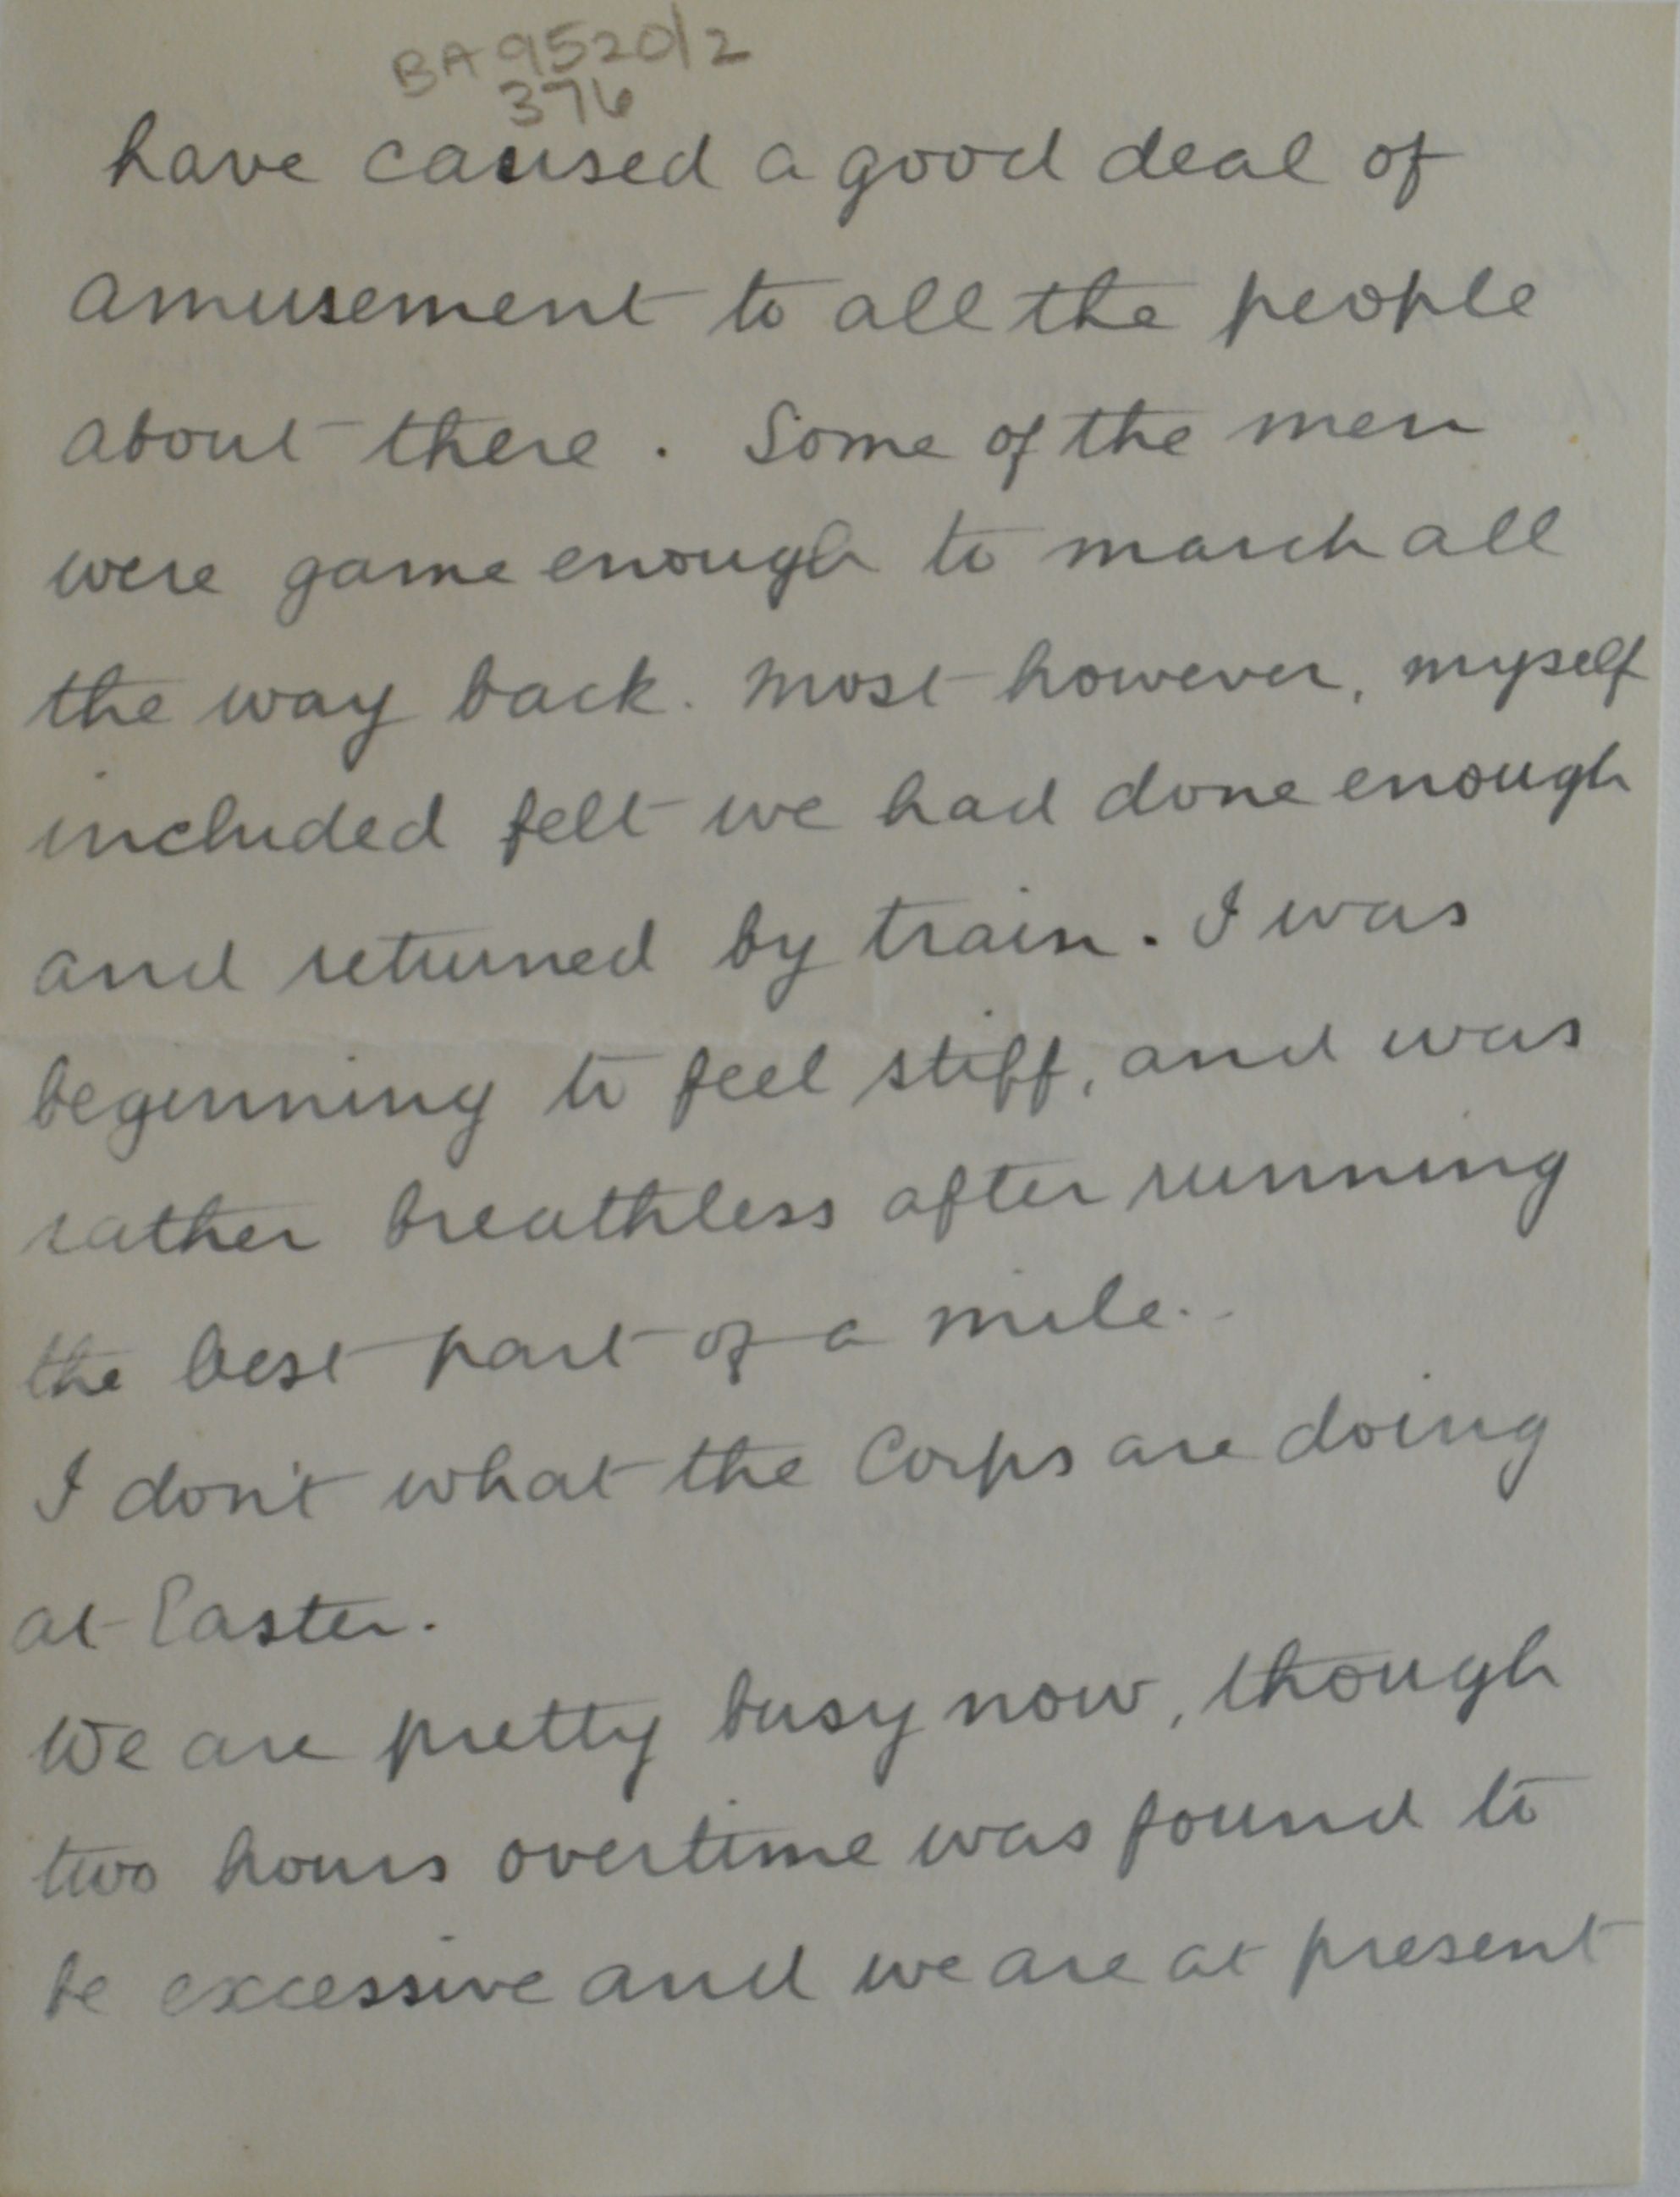 BA 9520/2
376
have caused a good deal of
amusement to all the people
about there. Some of the men
were game enough to march all
the way back. Most however, myself
included felt we had done enough
and returned by train. I was
beginning to feel stiff, and was
rather breathless after running
the best part of a mile.
I don't what the Corps are doing
at Easter.
We are pretty busy now, though
two hours overtime was found to
be excessive and we are at present